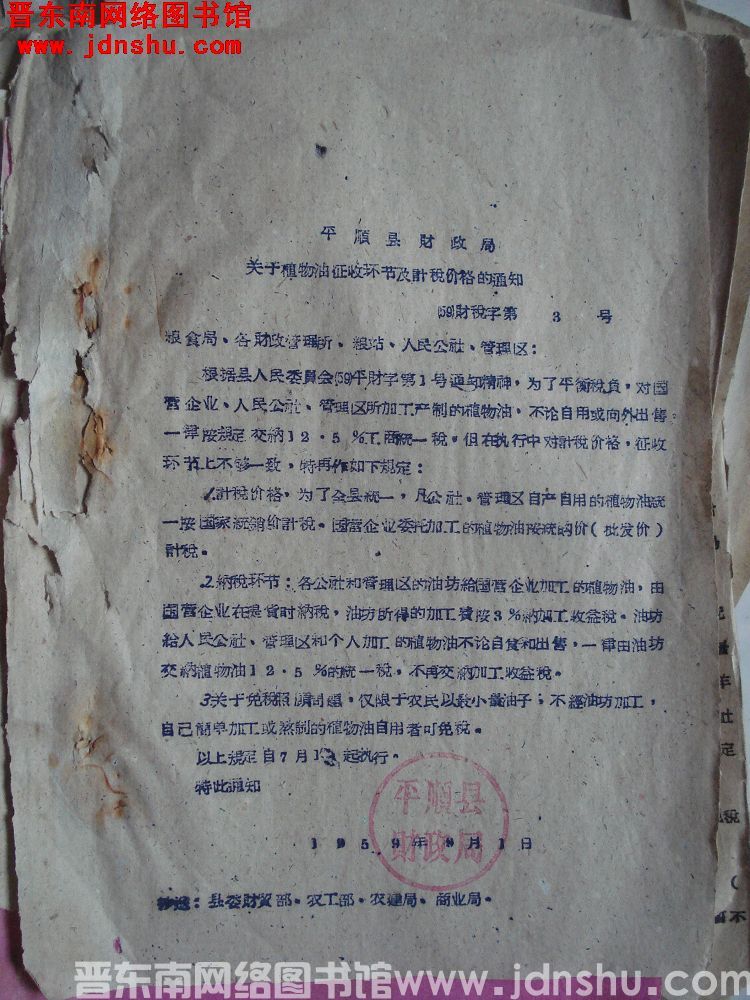 晋东南网络图书馆
www.jdnshu.com
平順县財政局
关于植物油征收环节及計稅价格的通知
(59)財稅字第 3 号
粮食局、各財政管理所、粮站、人民公社、管理区：
根据县人民委員会(59)平財字第1号通知精神，为了平衡稅負，对国
营企业、人民公社、管理区所加工产制的植物油，不論自用或向外出售。
一律按規定交納12.5％工商統一稅，但在执行中对計稅价格，征收
环节上不够一致，特再作如下規定：
1.計稅价格，为了全县統一，凡公社、管理区自产自用的植物油統
一按国家統銷价計稅。国营企业委托加工的植物油按統购价（批发价）
計稅。
2.納稅环节：各公社和管理区的油坊給国营企业加工的植物油，由
国营企业在提货时納稅，油坊所得的加工費按3％納加工收益稅。油坊
給人民公社、管理区和个人加工的植物油不論自食和出售，一律由油坊
交納植物油12.5％的統一稅，不再交納加工收益稅。
3关于免稅照顧問題，仅限于农民以数小量油子，不經油坊加工，
自己簡单加工或熬制的植物油自用者可免稅。
以上規定自7月1日起执行。
特此通知
平順县
財政局
1959年9月1日
抄送：县委財贸部、农工部、农建局、商业局。
晋东南网络图书馆www.jdnshu.com